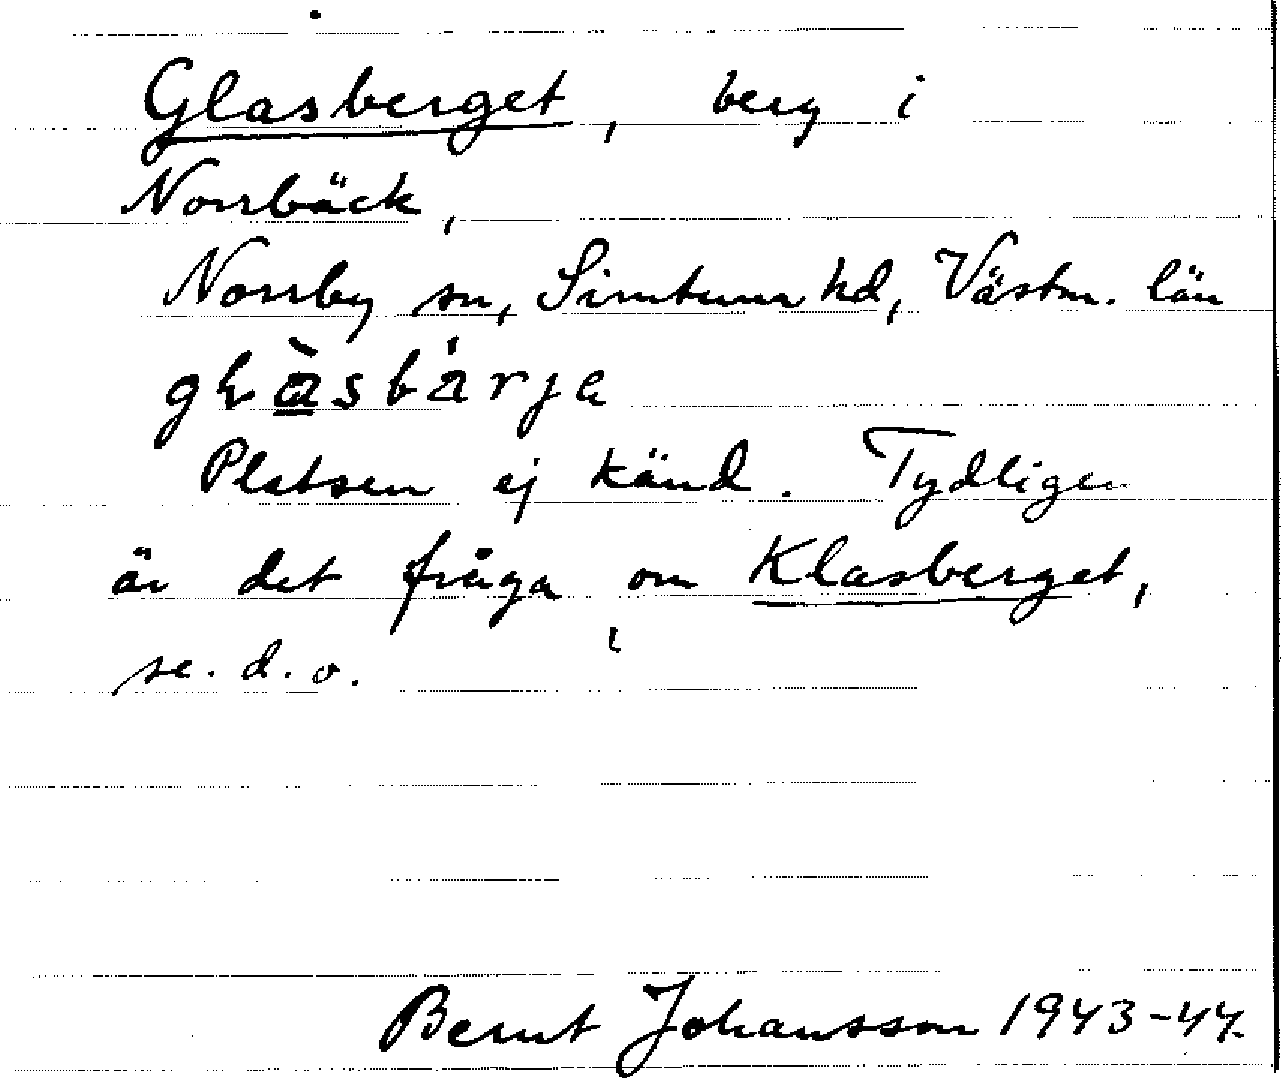 Glasberget, berg i
Norrbäck,
Norrby sn, Simtuna hd, Västm. län
Platsen ej känd. Tydligen
är det fråga om Klasberget,
se. d. o.
Bernt Johansson 1943-44.